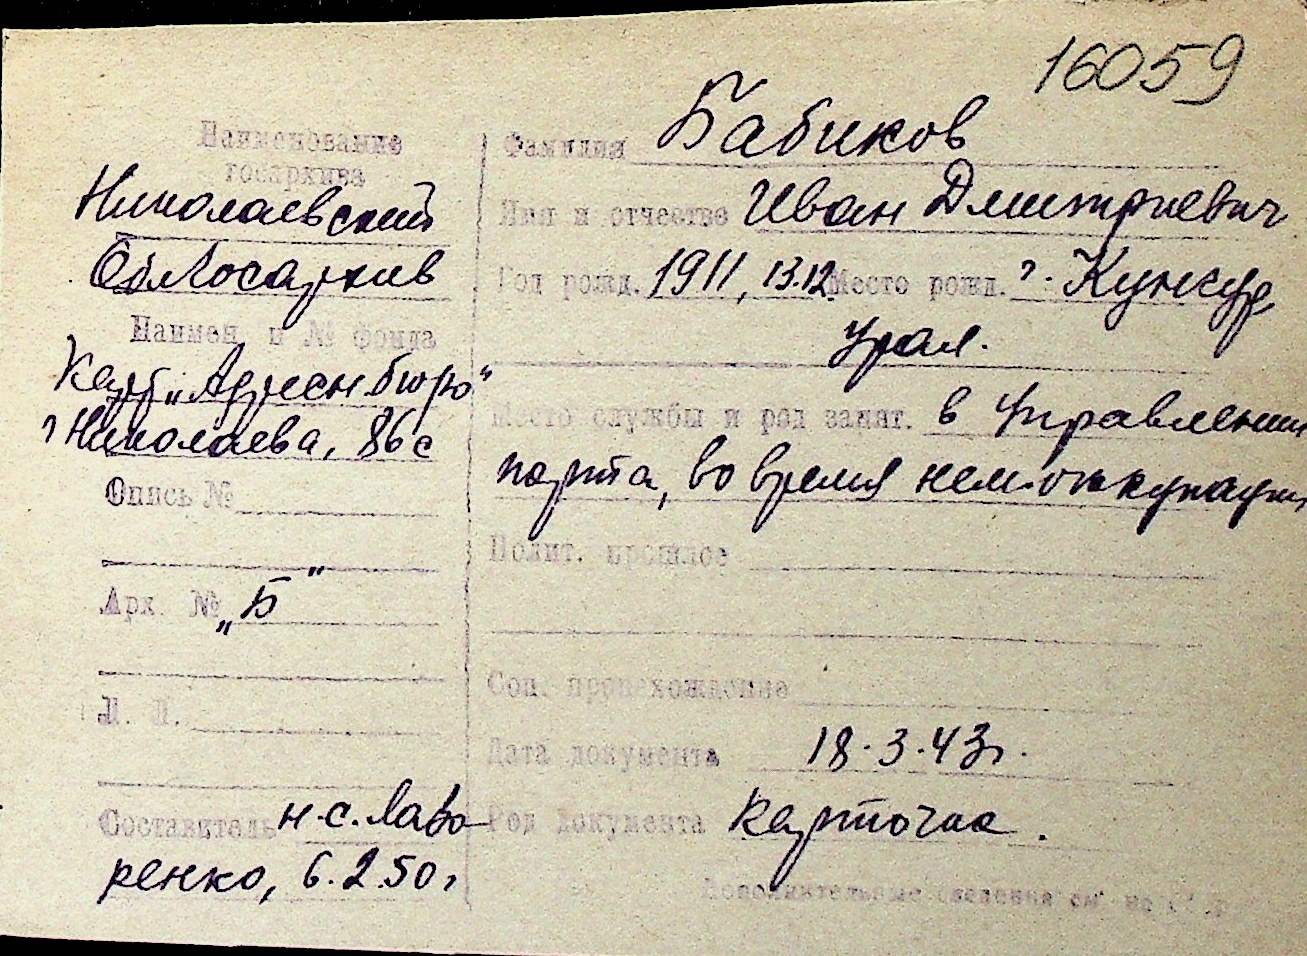 16059
Наименование
госархива
Николаевский
Облгосархив
Наимен. и № фонда
Карт. „Адресн бюро"
г Николаева, 86 с
Опись №
Арх. № „Б"
Л. Л.
Составитель н.с. Лаво-
ренко, 6.2.50 г
Фамилия Бабиков
Имя и отчество Иван Дмитриевич
Год рожд. 1911, 13.12. Место рожд. г. Кунгур,
Урал.
Место службы и род занят. в управлении
порта, во время нем. оккупации
Полит. прошлое
Соц. происхождение
Дата документа 18.3.43 г.
Род документа карточка.
Дополнительные сведения см. на